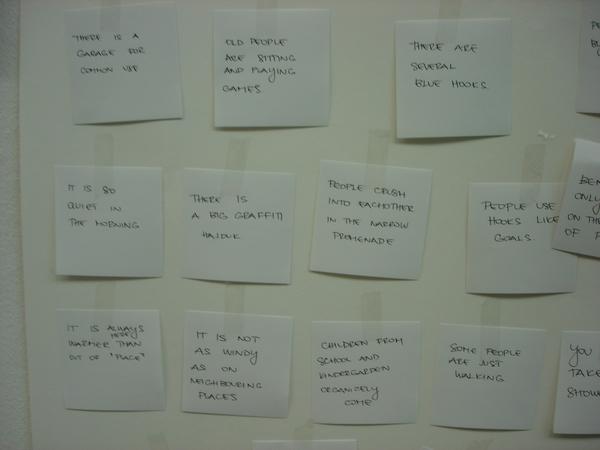 THERE IS A
GARAGE FOR
COMMON USE
OLD PEOPLE
ARE SITTING
AND PLAYING
GAMES
THERE ARE
SEVERAL
BLUE HOOKS
IT IS SO
QUIET IN
THE MORNING
THERE IS
A BIG GRAFFITI
HAJDUK
PEOPLE CRUSH
INTO EACHOTHER
IN THE NARROW
PROMENADE
PEOPLE USE
HOOKS LIKE
GOALS
ONLY
ON THE
OF
IT IS ALWAYS
HERE
WARMER THAN
OUT OF "PLACE"
IT IS NOT
AS WINDY
AS ON
NEIGHBOURING
PLACES
CHILDREN FROM
SCHOOL AND
KINDERGARDEN
ORGANIZELY
COME
SOME PEOPLE
ARE JUST
WALKING
YOU
TAKE
SHOWE